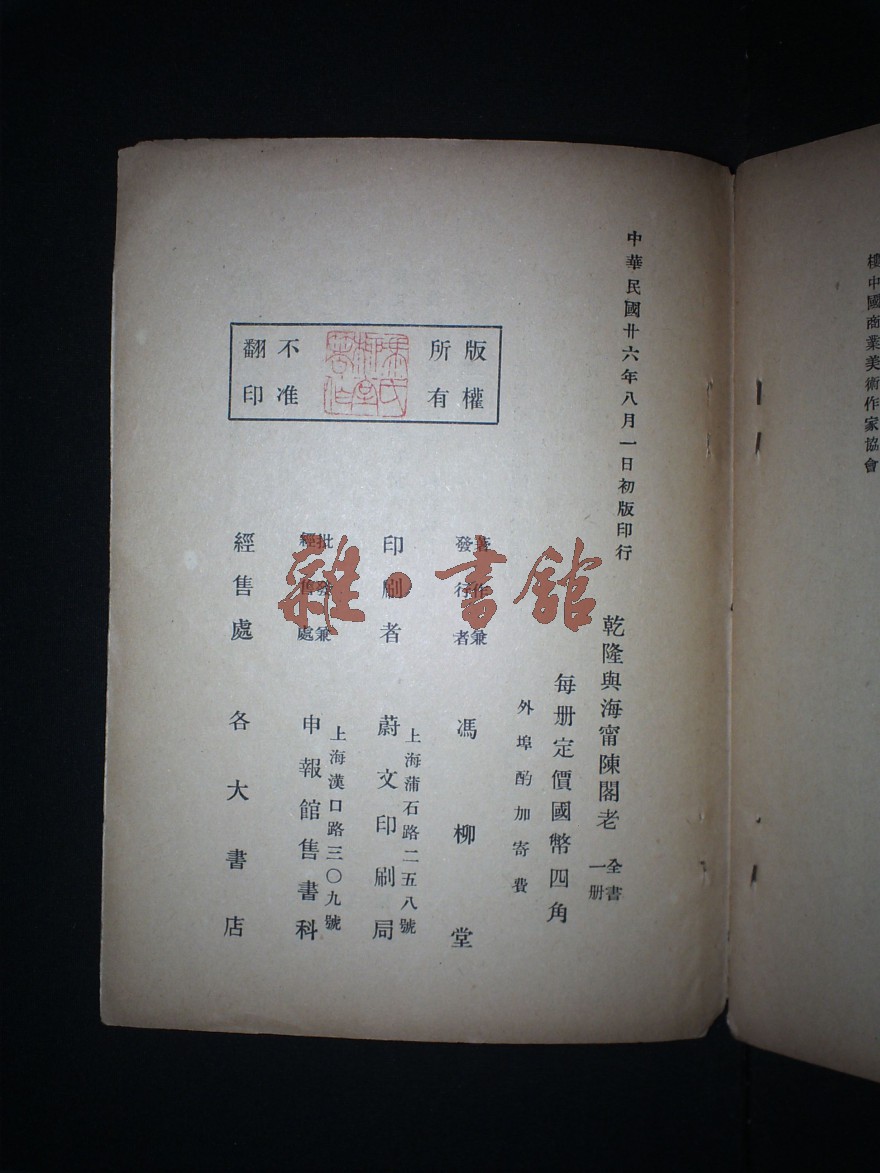 樓中國商業美術作家協會
中華民國廿六年八月一日初版印行
版權
所有
不准
翻印
馮氏
柳堂
著作
乾隆與海甯陳閣老
全書
一册
每册定價國幣四角
外埠酌加寄費
著作兼
發行者
馮柳堂
印刷者
上海蒲石路二五八號
蔚文印刷局
批發兼
經售處
上海漢口路三〇九號
申報館售書科
經售處
各大書店
雜·書舘